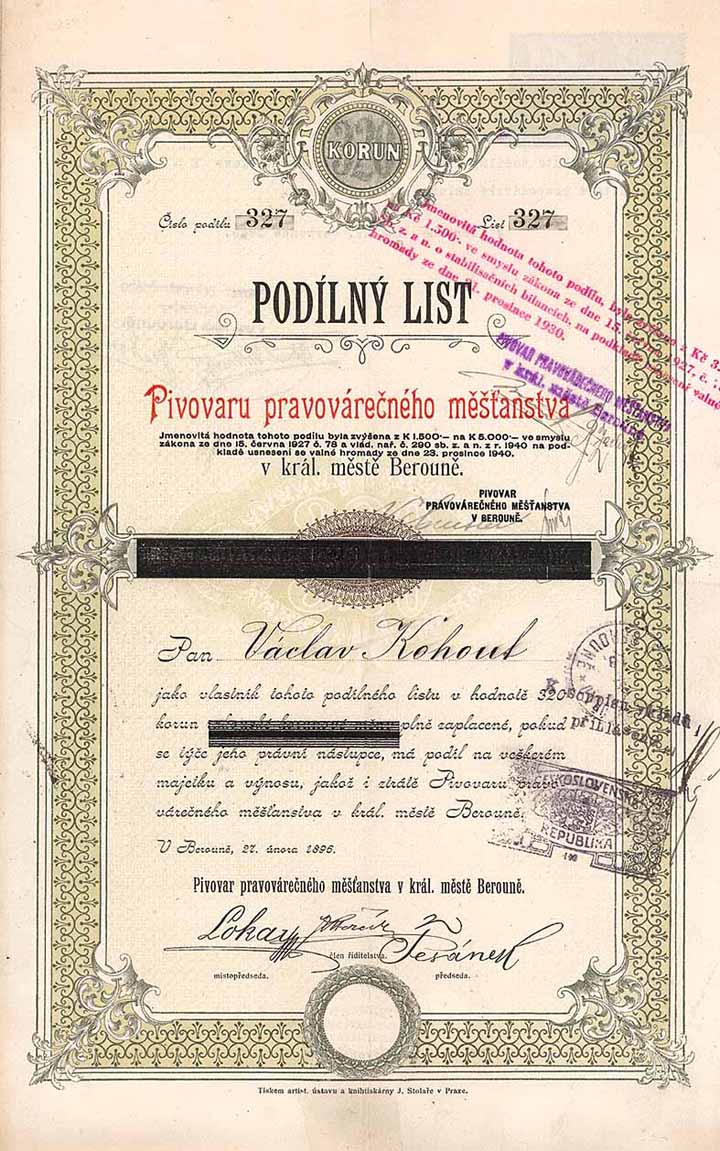 KORUN
Číslo podílu 327 List 327
Jmenovitá hodnota tohoto podílu, byla
Kč 1.500·- ve smyslu zákona ze dne 15. 1927. č.
sb. z. a n. o stabilisačních bilancích, na podkladě usnesení valné
hromady ze dne 21. prosince 1930.
PODÍLNÝ LIST
PIVOVAR PRAVOVÁREČNÉHO MĚŠŤANSTVA
v král. městě Berouně
Pivovaru pravovárečného měšťanstva
Jmenovitá hodnota tohoto podílu byla zvýšena z K 1.500·— na K 5.000·— ve smyslu
zákona ze dne 15. června 1927 č. 78 a vlád. nař. č. 290 sb. z. a n. z r. 1940 na pod-
kladě usnesení se valné hromady ze dne 23. prosince 1940.
v král. městě Berouně.
PIVOVAR
PRAVOVÁREČNÉHO MĚŠŤANSTVA
V BEROUNĚ.
Pan Václav Kohout
jako vlastník tohoto podílného listu v hodnotě 320
korun plně zaplacené, pokud
se týče jeho právní nástupce, má podíl na veškerém
majetku a výnosu, jakož i ztrátě Pivovaru pravo-
várečného měšťanstva v král. městě Berouně.
K soupisu
přihlášeno
ČESKOSLOVENSKÁ
REPUBLIKA
V Berouně, 27. února 1896.
Pivovar pravovárečného měšťanstva v král. městě Berouně.
Pešánek
místopředseda. člen ředitelstva. předseda.
Tiskem artist. ústavu a knihtiskárny J. Stolaře v Praze.